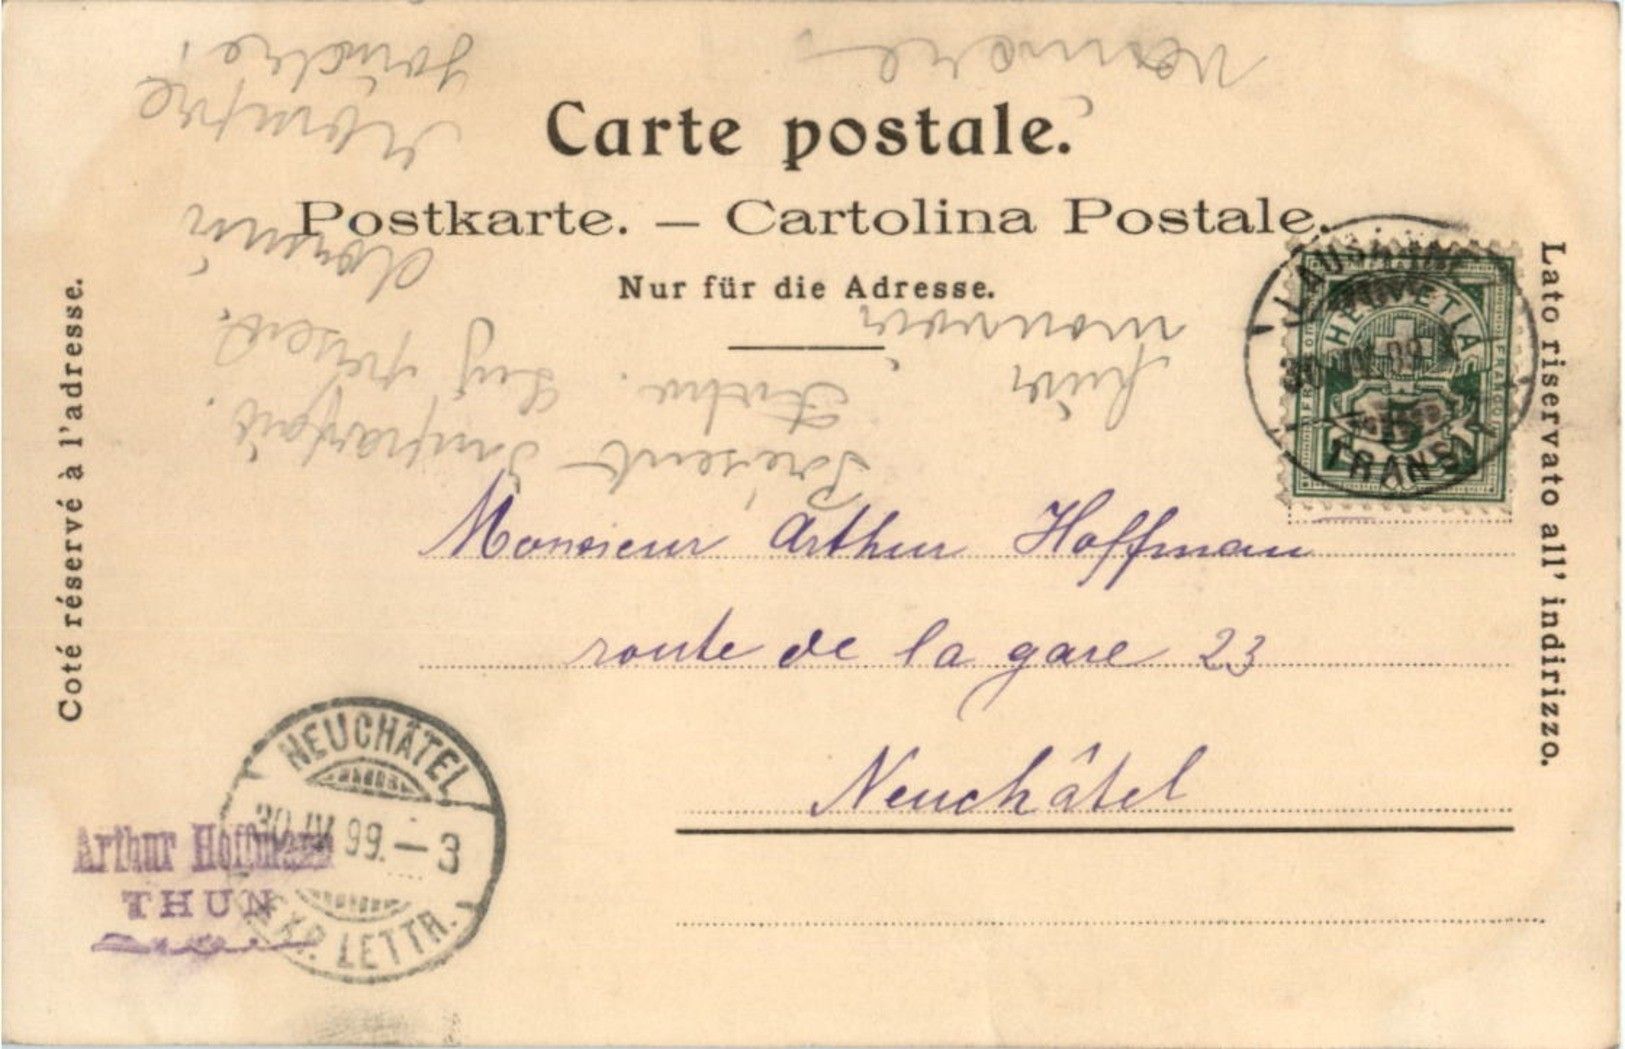 Carte postale.
Postkarte. — Cartolina Postale.
Nur für die Adresse.
Coté réservé à l'adresse.
Lato riservato all' indirizzo.
LAUSANNE
TRANSIT
HELVETIA
FRANCO
5
Monsieur Arthur Hoffmann
route de la gare 23
Neuchâtel
NEUCHÂTEL
30.IV.99.–3
EXP. LETTR.
Arthur Hoffmann
THUN
Présent Imparfait
Dormir